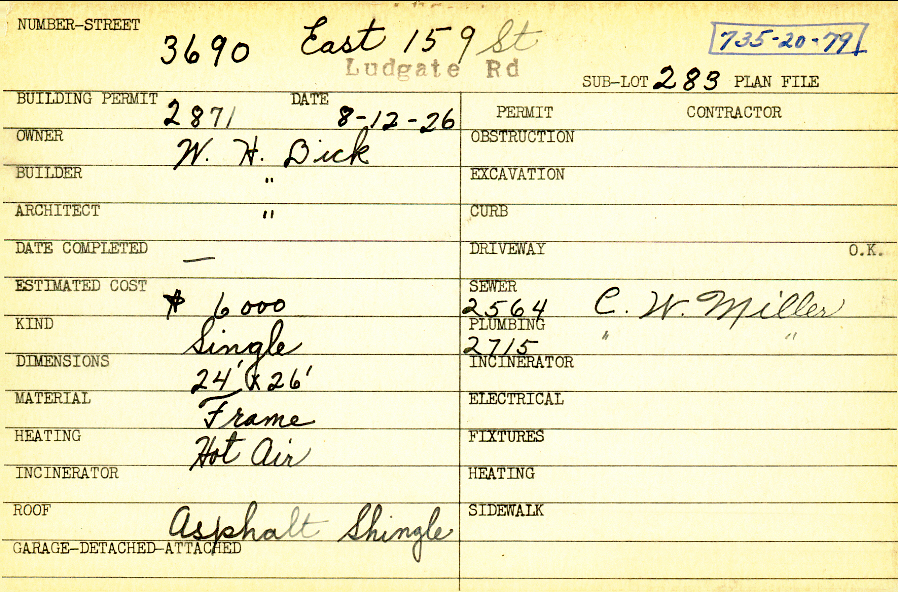 NUMBER-STREET 3690 East 159 St 735-20-79
Ludgate Rd
SUB-LOT 283 PLAN FILE
BUILDING PERMIT 2871 DATE 8-12-26 PERMIT CONTRACTOR
OWNER W. H. Dick OBSTRUCTION
BUILDER " EXCAVATION
ARCHITECT " CURB
DATE COMPLETED — DRIVEWAY O.K.
ESTIMATED COST $ 6000 SEWER 2564 C. W. Miller
KIND Single PLUMBING 2715 " "
DIMENSIONS 24' x 26' INCINERATOR
MATERIAL Frame ELECTRICAL
HEATING Hot Air FIXTURES
INCINERATOR HEATING
ROOF Asphalt Shingle SIDEWALK
GARAGE-DETACHED-ATTACHED